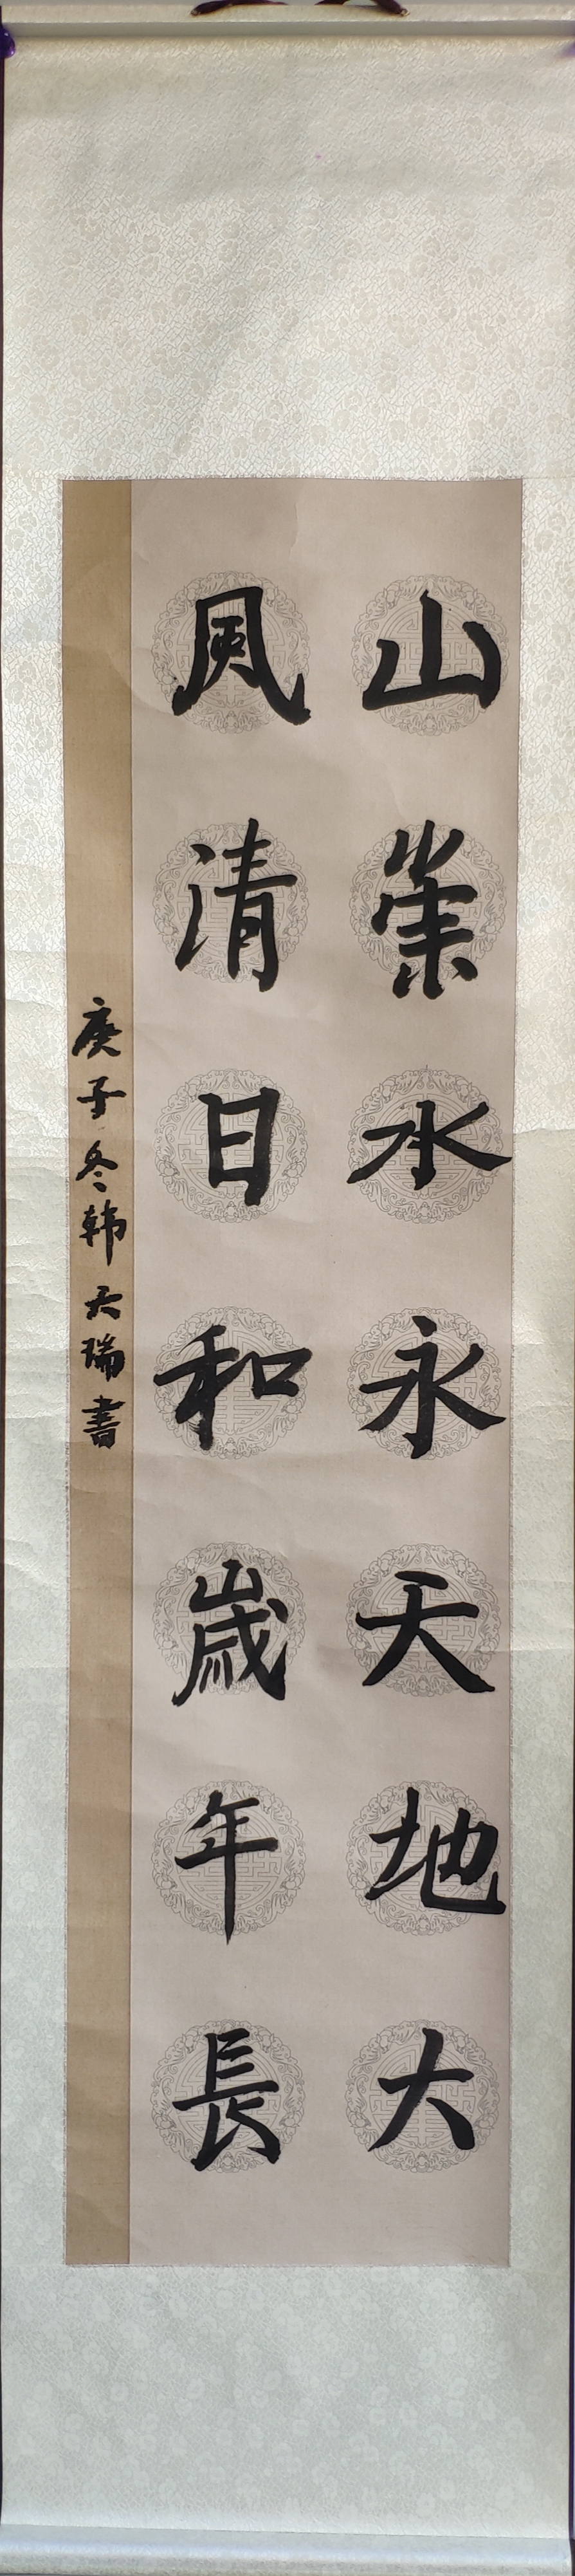 山崇水永天地大
風清日和歲年長
庚子冬韩天瑞書